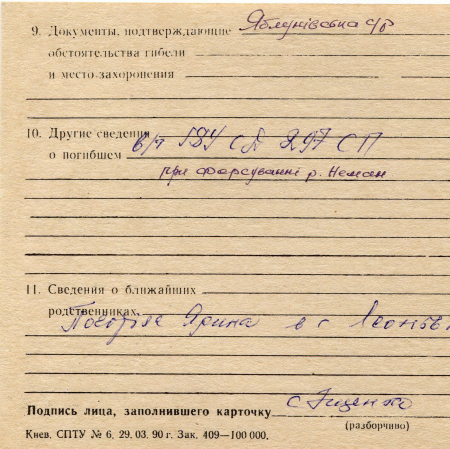 9. Документы, подтверждающие Яблунівська с/р
обстоятельства гибели
и место захоронения
10. Другие сведения в/ч 184 СД 297 СП
о погибшем
при форсуванні р. Неман
11. Сведения о ближайших
родственниках
Ярина в с
Подпись лица, заполнившего карточку
(разборчиво)
Киев. СПТУ № 6. 29. 03. 90 г. Зак. 409—100 000.